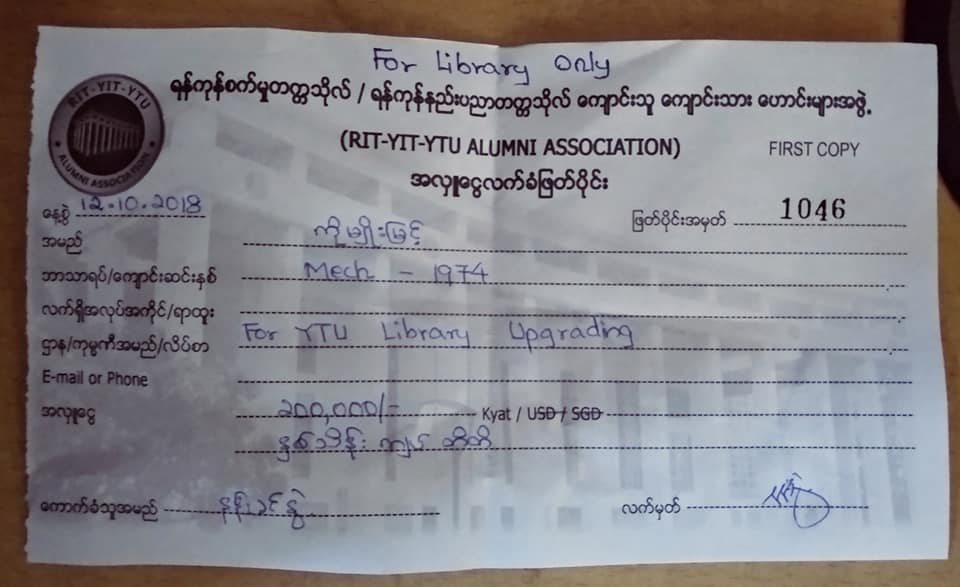 For Library Only
ရန်ကုန်စက်မှုတက္ကသိုလ် / ရန်ကုန်နည်းပညာတက္ကသိုလ် ကျောင်းသူ ကျောင်းသား ဟောင်းများအဖွဲ့
RIT-YIT-YTU
ALUMNI ASSOCIATION
(RIT-YIT-YTU ALUMNI ASSOCIATION) FIRST COPY
အလှူငွေလက်ခံဖြတ်ပိုင်း
နေ့စွဲ 12.10.2018 ဖြတ်ပိုင်းအမှတ် 1046
အမည် ကိုမျိုးမြင့်
ဘာသာရပ်/ကျောင်းဆင်းနှစ် Mech - 1974
လက်ရှိအလုပ်အကိုင်/ရာထူး
ဌာန/ကုမ္ပဏီအမည်/လိပ်စာ For YTU Library Upgrading
E-mail or Phone
အလှူငွေ 200,000/- Kyat / USD / SGD
နှစ်သိန်း ကျပ် တိတိ
ကောက်ခံသူအမည် နန်းခင်နွဲ့ လက်မှတ်